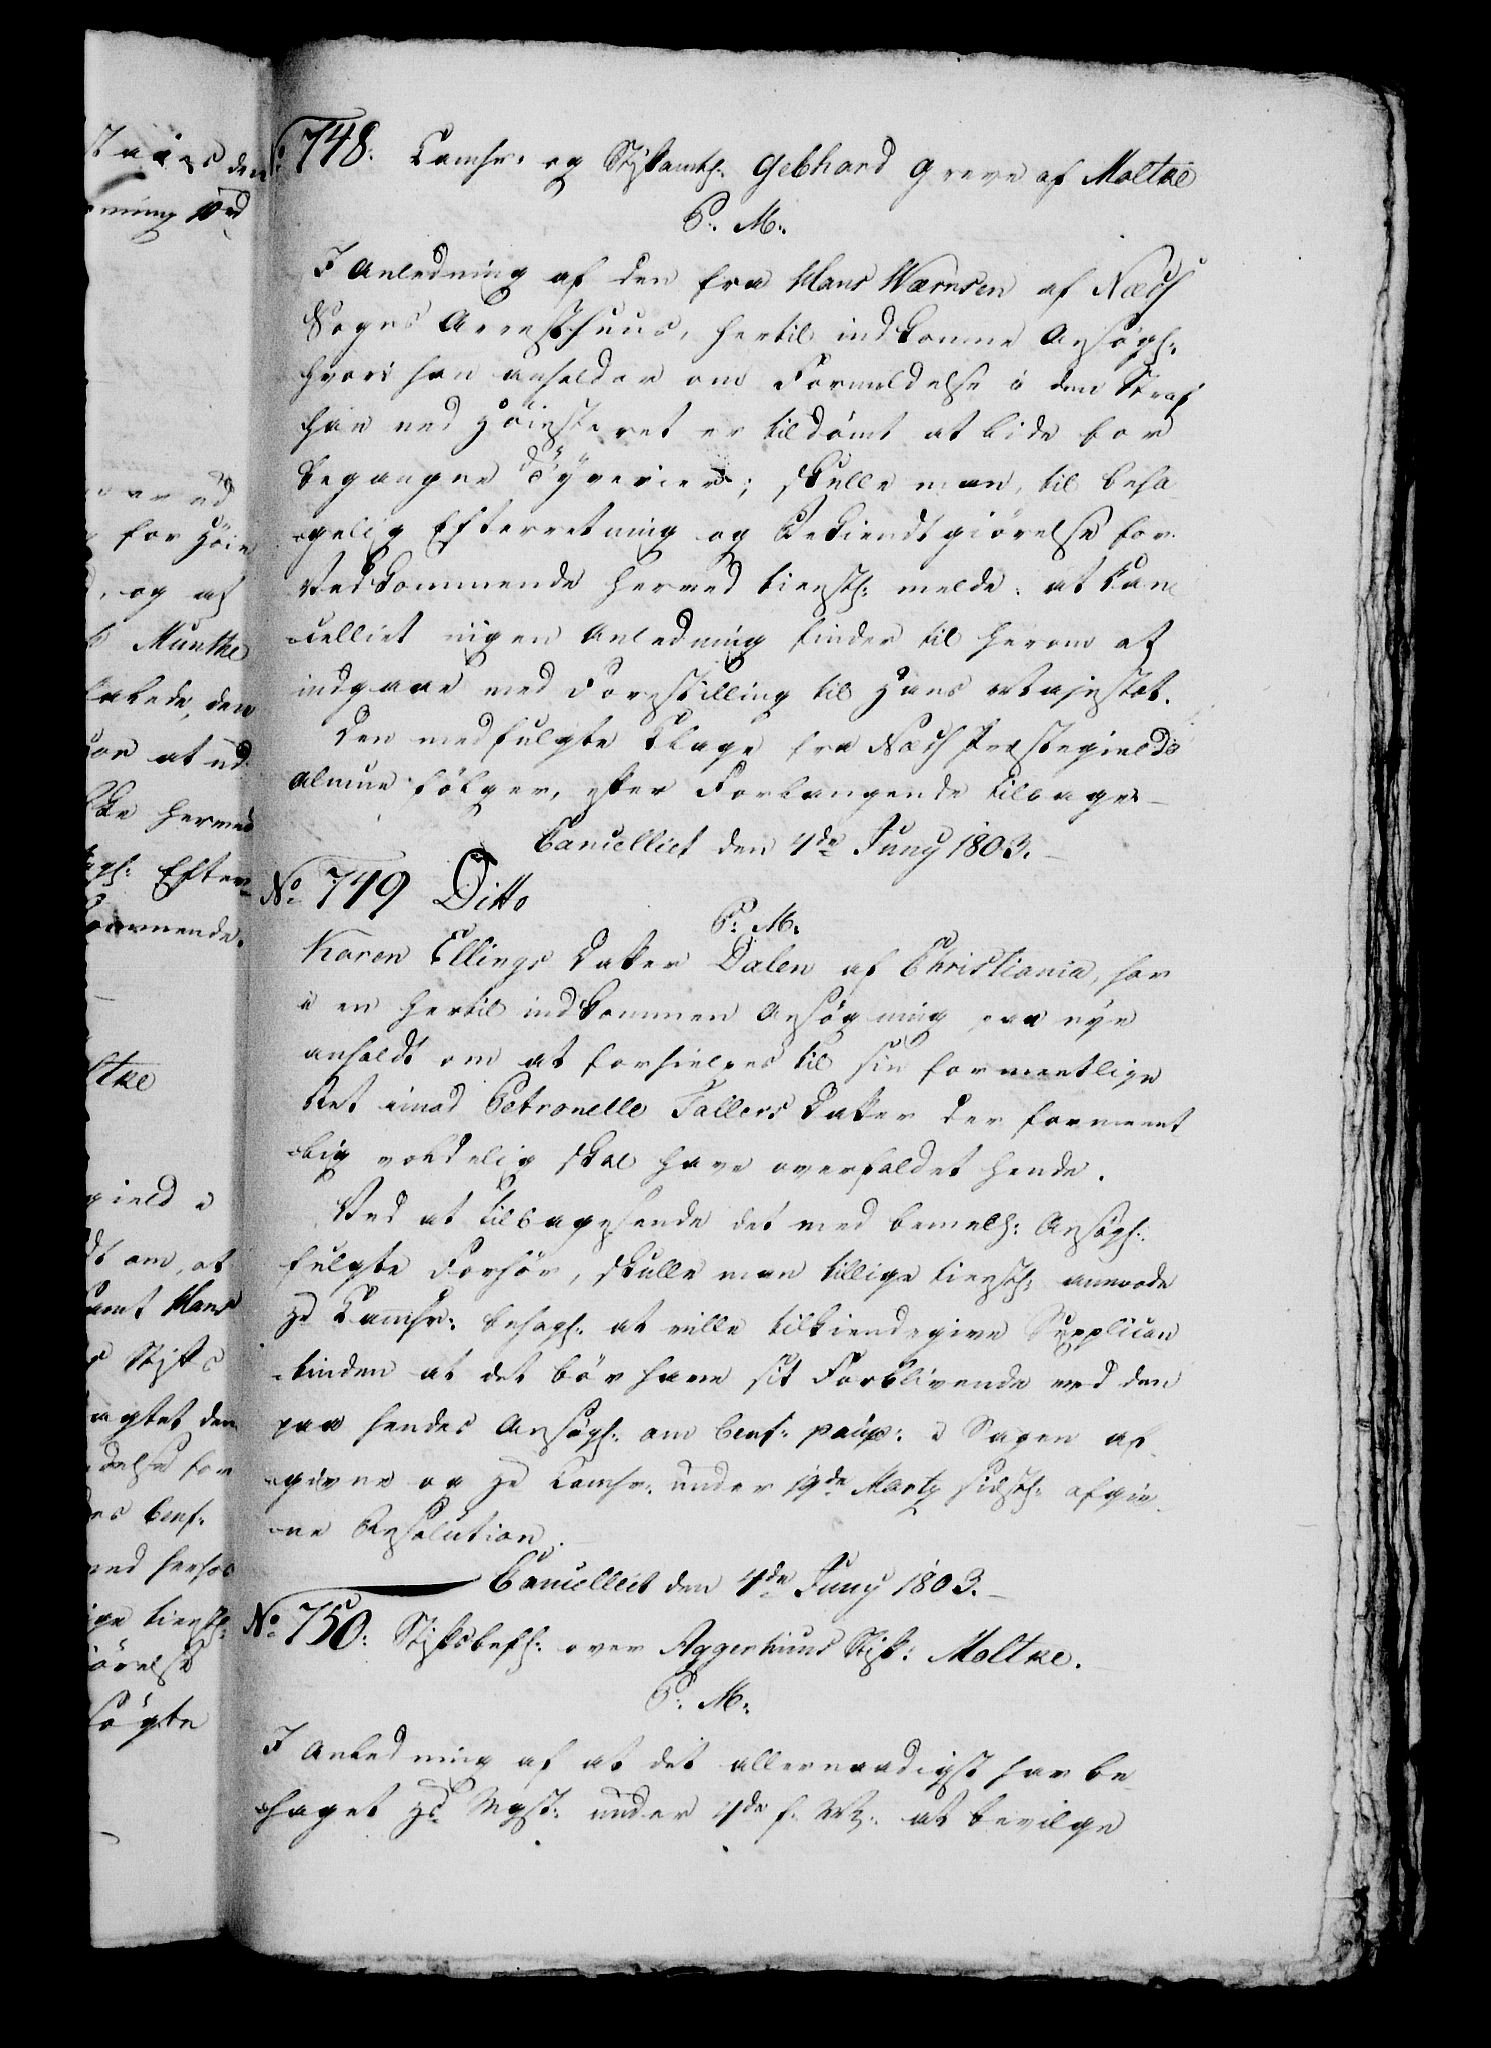 No 748. Camhr. og Stiftamtm. Gebhard Greve af Moltke
P. M.
I Anledning af den fra Hans Wærnsen af Næss
Sogns Arresthuus, hertil indkomne Ansøgn:
hvori han anholder om Formildelse i den Straf
han ved Höiesteret er tildömt at lide for
begangne Tyverier; skulle man, til beha
-gelig Efterretning og Bekiendtgiörelse for
Vedkommende herved tienstl: melde, at Can
-celliet ingen Anledning finder til herom at
indgaae med Forestilling til Hans Majestæt.
Den medfulgte Klage fra Næss Præstegields
Almue fölger, efter Forlangende tilbage.
Cancelliet den 4de Juny 1803.
No 749 Ditto
P. M.
Karen Ellings Datter Dalen af Christiania, har
i en hertil indkommen Ansögning paa nye
anholdt om at forhielpes til sin formeentlige
Ret imod Petronelle Tallers Datter der formeent
-lig voldelig skal have overfaldet hende.
Ved at tilbagesende det med bemelte Ansögn:
fulgte Forhör, skulle man tillige tienstl: anmode
Hr Camhr: behagl: at ville tilkiendegive Supplican
-tinden at det bör have sit Forblivende ved den
paa hendes Ansögn: om benef: paup: i Sagen af
-givne og Hr Camhr: under 19de Marty sidstl: afgiv
-ne Resolution.
Cancelliet den 4de Juny 1803.
No 750. Stiftsbefh: over Aggerhuus Stift: Moltke.
P. M.
I Anledning af at det allernaadigst har be
-haget Hs Mayst: under 4de f. M. at bevilge